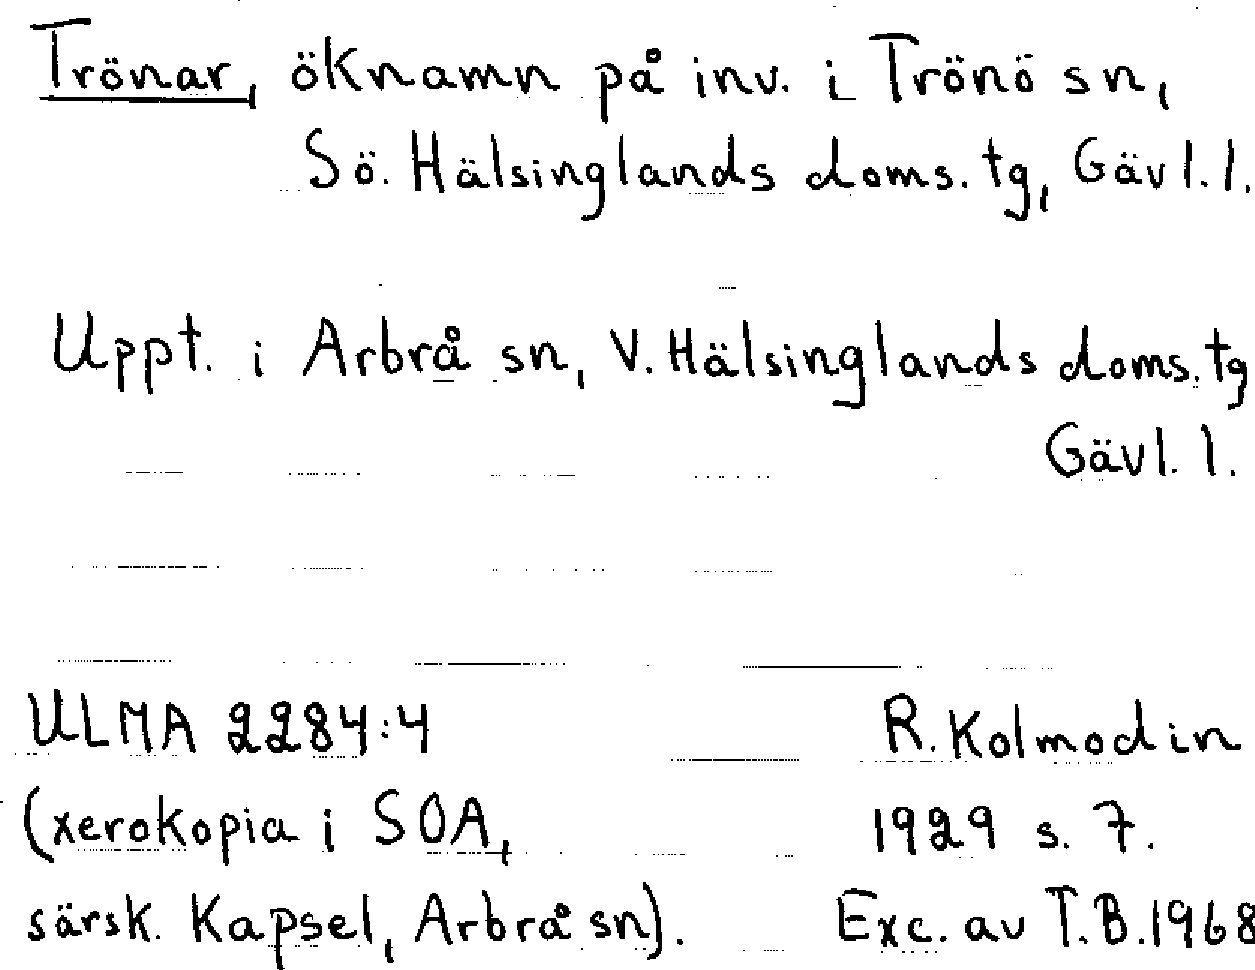 Trönar, öknamn på inv. i Trönö sn,
Sö. Hälsinglands doms. tg, Gävl. l.
Uppt. i Arbrå sn, V. Hälsinglands doms. tg
Gävl. l.
ULMA 2284:4 R. Kolmodin
(xerokopia i SOA, 1929 s. 7.
särsk. Kapsel, Arbrå sn). Exc. av T.B. 1968